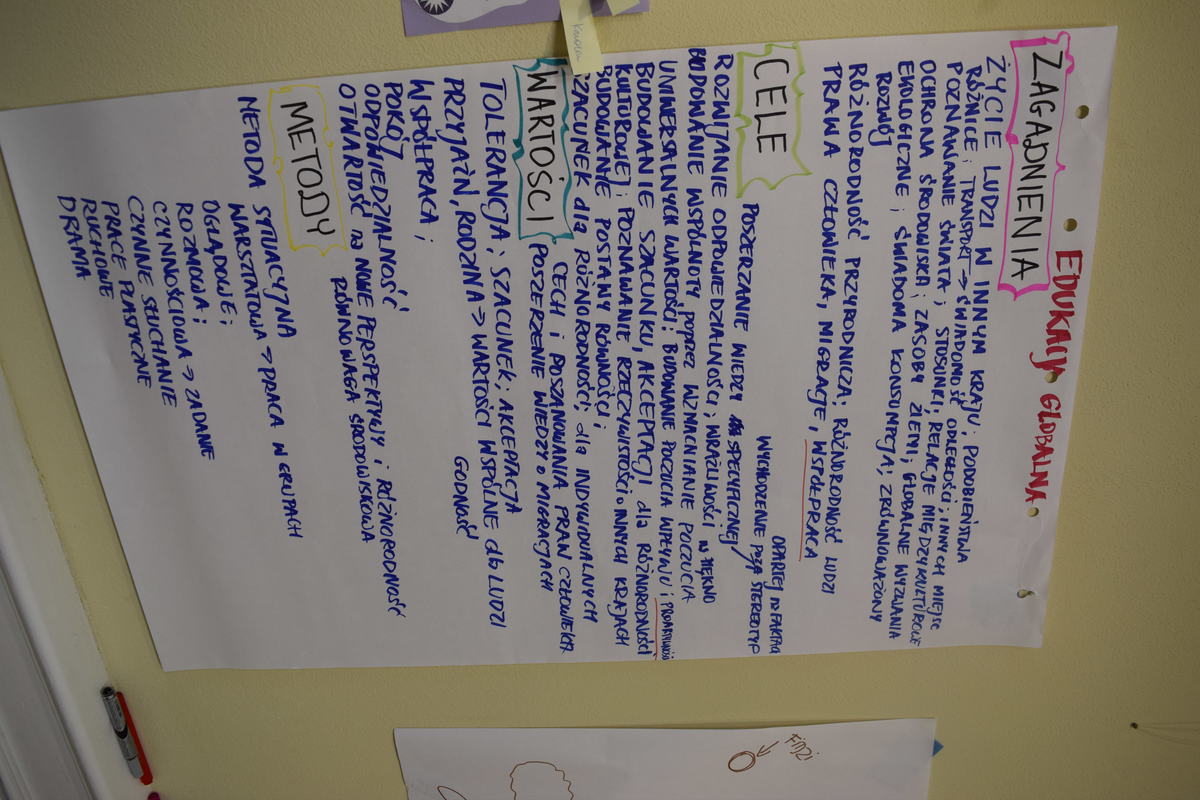 EDUKACJI GLOBALNA
ZAGADNIENIA
ŻYCIE LUDZI W INNYM KRAJU: PODOBIEŃSTWA
RÓŻNICE; TRANSPORT → ŚWIADOMOŚĆ ODLEGŁOŚCI; INNYCH MIEJSC
POZNAWANIE ŚWIATA; STOSUNKI, RELACJE MIĘDZYKULTUROWE
OCHRONA ŚRODOWISKA; ZASOBY ZIEMI; GLOBALNE WYZWANIA
EKOLOGICZNE; ŚWIADOMA KONSUMPCJA; ZRÓWNOWAŻONY
ROZWÓJ
RÓŻNORODNOŚĆ PRZYRODNICZA; RÓŻNORODNOŚĆ LUDZI
PRAWA CZŁOWIEKA, MIGRACJE, WSPÓŁPRACA
CELE
OPARTEJ na FAKTACH
WYCHODZENIE POZA STEREOTYP
POSZERZANIE WIEDZY SPECYFICZNEJ/
ROZWIJANIE ODPOWIEDZIALNOŚCI, WRAŻLIWOŚCI na PIĘKNO
BUDOWANIE WSPÓLNOTY poprzez WZMACNIANIE POCZUCIA
UNIWERSALNYCH WARTOŚCI; BUDOWANIE POCZUCIA WPŁYWU i PROAKTYWNOŚCI
BUDOWANIE SZACUNKU, AKCEPTACJI dla RÓŻNORODNOŚCI
KULTUROWEJ; POZNAWANIE RZECZYWISTOŚCI w INNYCH KRAJACH
BUDOWANIE POSTAWY RÓWNOŚCI i
SZACUNEK dla RÓŻNORODNOŚCI; dla INDYWIDUALNYCH
CECH i POSZANOWANIA PRAW CZŁOWIEKA
POSZERZENIE WIEDZY o MIGRACJACH
WARTOŚCI
TOLERANCJA; SZACUNEK; AKCEPTACJA
PRZYJAŹŃ, RODZINA → WARTOŚCI WSPÓLNE dla LUDZI
WSPÓŁPRACA; GODNOŚĆ
POKÓJ
ODPOWIEDZIALNOŚĆ
OTWARTOŚĆ na NOWE PERSPEKTYWY i RÓŻNORODNOŚĆ
RÓWNOWAGA ŚRODOWISKOWA
METODY
METODA SYTUACYJNA
WARSZTATOWA → PRACA W GRUPACH
OGLĄDOWE;
ROZMOWA;
CZYNNOŚCIOWA → ZADANE
CZYNNE SŁUCHANIE
PRACE PLASTYCZNE
RUCHOWE
DRAMA
FIDŻI